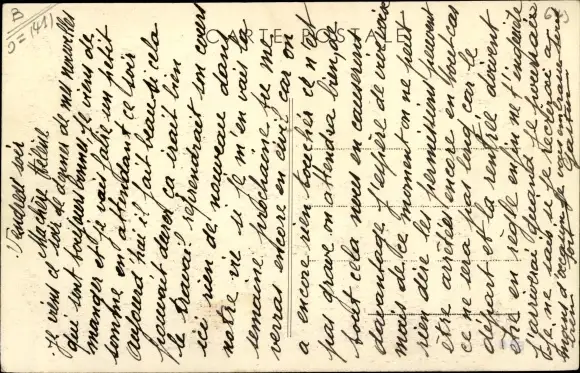 B
D = (141)
CARTE POSTALE
Vendredi soir
Ma chère Hélène
Je viens ce soir te donner de mes nouvelles
qui sont toujours bonnes, je viens de
manger et je vais faire un petit
somme en attendant ce soir
aujourd'hui il fait beau si cela
pouvait durer ça irait bien
le travail reprendrait son cours
ici rien de nouveau dans
notre vie si je m'en vais la
semaine prochaine je me
verras encore en civil car on
a encore rien touché ce n'est
pas grave on attendra bien, de
tout cela nous en causerons
davantage j'espère de vive voix
mais de ce moment on ne peut
rien dire les permissions peuvent
être arrêtées encore en tout cas
ce ne sera pas long car le
départ et la rentrée doivent
être en règle enfin ne t'inquiète
j'arriverai quand je pourrai
je ne sais si je techerai a
tout et
Gaston